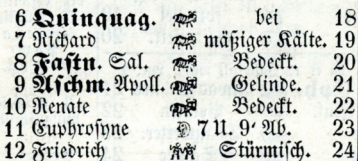 6 Quinquag. bei 18
7 Richard mäßiger Kälte. 19
8 Fastn. Sal. Bedeckt. 20
9 Aschm. Apoll. Gelinde. 21
10 Renate Bedeckt. 22
11 Euphrosyne 7 U. 9' Ab. 23
12 Friedrich Stürmisch. 24